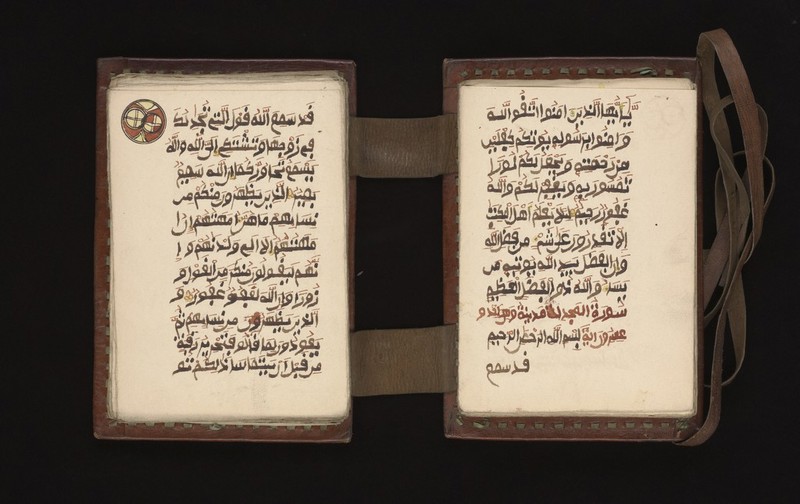 يأيها الذين امنوا اتقوا الله
وامنوا برسوله يوتكم كفلين
من رحمته ويجعل لكم نورا
تمشون به ويغفر لكم والله
غفور رحيم ليلا يعلم اهل الكتب
الا تقدرون على شيء من فضل الله
وان الفضل بيد الله يوتيه من
يشاء والله ذو الفضل العظيم
سورة المجدلة مدنية وهي
عشرون اية بسم الله الرحمن الرحيم
قد سمع
قد سمع الله قول التي تجدلك
في زوجها وتشتكي الى الله والله
يسمع تحاوركما ان الله سميع
بصير الذين يظهرون منكم من
نسايهم ما هن امهتهم ان ا
مهتهم الا الى ولدنهم وا
نهم ليقولون منكرا من القول و
زورا وان الله لعفو غفور و
الذين يظهرون من نسايهم ثم
يعودون لما قالوا فتحرير رقبة
من قبل ان يتماسا ذلكم تو